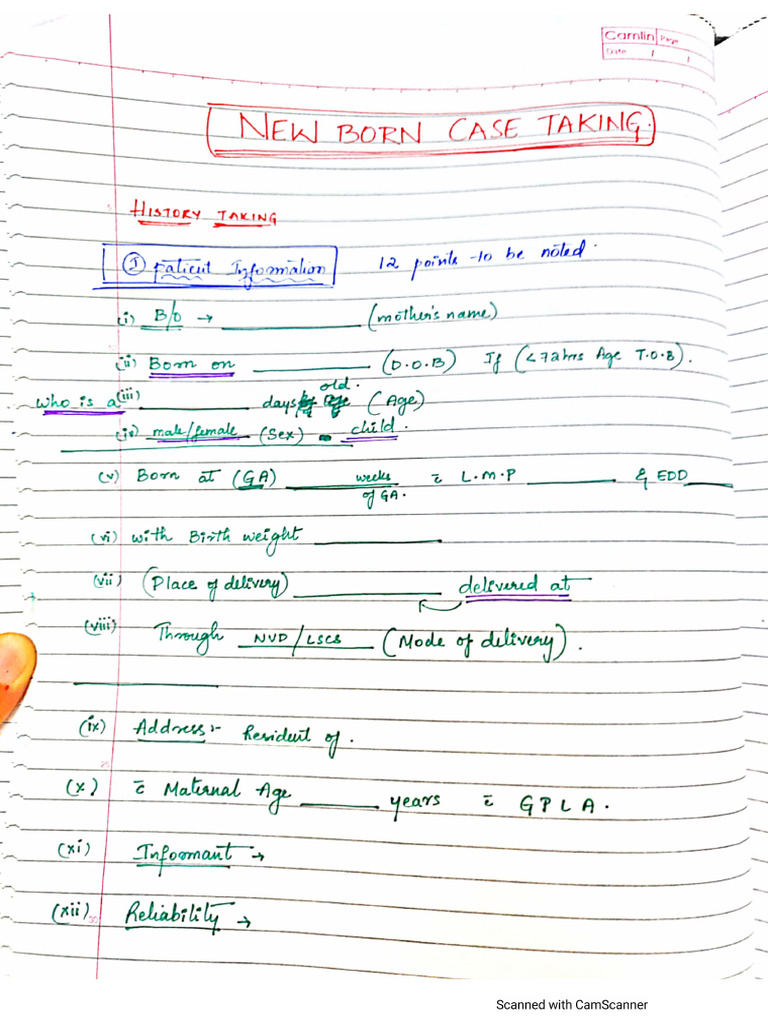 Camlin Page
Date / /
NEW BORN CASE TAKING.
HISTORY TAKING
① Patient Information 12 points to be noted.
(i) B/O → __________ (mother's name)
(ii) Born on __________ (D.O.B) If (<72hrs Age T.O.B).
who is a (iii) __________ days old. (Age)
(iv) male/female (Sex) - child.
(v) Born at (GA) ______ weeks of GA. c̄ L.M.P ______ & EDD ____
(vi) with Birth weight __________
(vii) (Place of delivery) __________ delivered at
(viii) Through NVD/LSCS (Mode of delivery).
(ix) Address:- Resident of.
25
(x) c̄ Maternal Age ______ years c̄ GPLA.
(xi) Informant →
(xii) Reliability →
30
Scanned with CamScanner